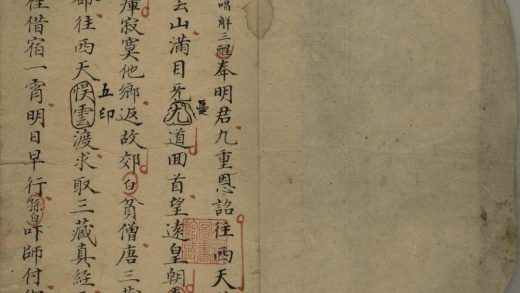 唱觧三酲奉明君九重恩詔往西天
雲山滿目旡道囬首望遠皇朝
寂寞他鄉返故郊白貧僧唐三藏
往西天五印渡求取三藏真經
徃借宿一宵明日早行孫白吓師付